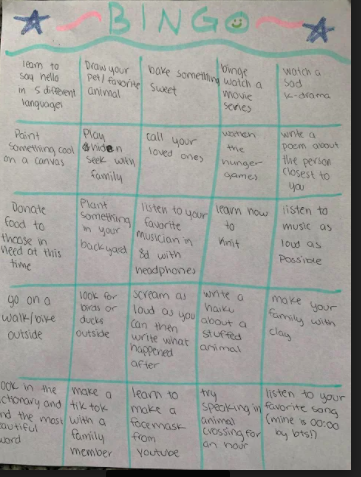 BINGO
learn to
say hello
in 5 different
languages
Draw your
pet/favorite
animal
bake something
sweet
binge
watch a
movie
series
watch a
sad
k-drama
Paint
something cool
on a canvas
Play
seek with
family
call your
loved ones
the
hunger
games
write a
poem about
the person
closest to
you
Donate
food to
those in
need at this
time
Plant
something
in your
backyard
listen to your
favorite
musician in
8d with
headphones
learn how
to
knit
listen to
music as
loud as
possible
go on a
walk/bike
outside
look for
birds or
ducks
outside
scream as
loud as you
can then
write what
happened
after
write a
haiku
about a
stuffed
animal
make your
family with
clay
ook in the
ctionary and
nd the most
autiful
word
make a
tik tok
with a
family
member
learn to
make a
facemask
from
youtube
try
speaking in
animal
crossing for
an hour
listen to your
favorite song
(mine is 00:00
by bts!)